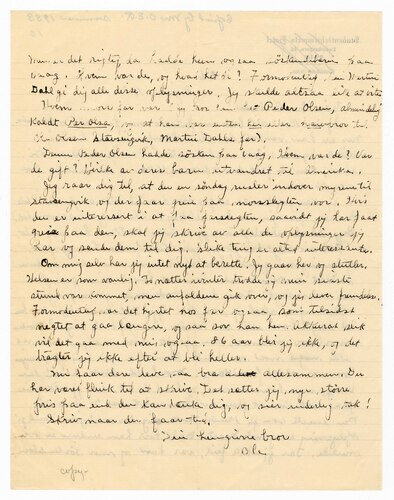 Men er det rigtig, da hadde hun ogsaa søskendebarn paa
Vaag. Hvem var de, og hvad het de? Formodentlig kan Martin
Dahl gi dig alle disse oplysninger. Jeg skulde altsaa like at vite
Hvem mors far var. Jeg tror han het Peder Olsen, almindelig
kaldt Per Olsa, og at han var enten her eller
Ole Olsen Stavseivik, Martin Dahls far).
Denne Peder Olsen hadde søsken paa Vaag. Hvem var de? Var
de gift? Hvilke av deres barn utvandret til Amerika.
Jeg raar dig til, at du en søndag rusler indover myrene til
Stavseivik, og der faar greie paa morsslegten vor. Hvis
du er interessert i at faa farslegten, saavidt jeg har faat
greie paa den, skal jeg skrive av alle de oplysninger jeg
har og sende dem til dig. Slike ting er altid interessante.
Om mig selv har jeg intet nyt at berette. Jeg gaar her og stuller.
Helsen er som vanlig. To nætter i vinter trodde jeg min sidste
stund var kommet, men anfaldene gik over, og jeg lever fremdeles.
Formodentlig er det hjertet hos far ogsaa, som tilsidst
negtet at gaa længere, og saa sov han hen. Akkurat slik
vil det gaa med mig ogsaa. 86 aar blir jeg ikke, og det
tragter jeg ikke efter at bli heller.
Nu faar dere leve saa bra allesammen. Du
har været flink til at skrive. Det sætter jeg mye større
pris paa end du kan tænke dig, og sier inderlig tak!
Skriv naar du faar tid.
Din hengivne bror
Ole
copy-